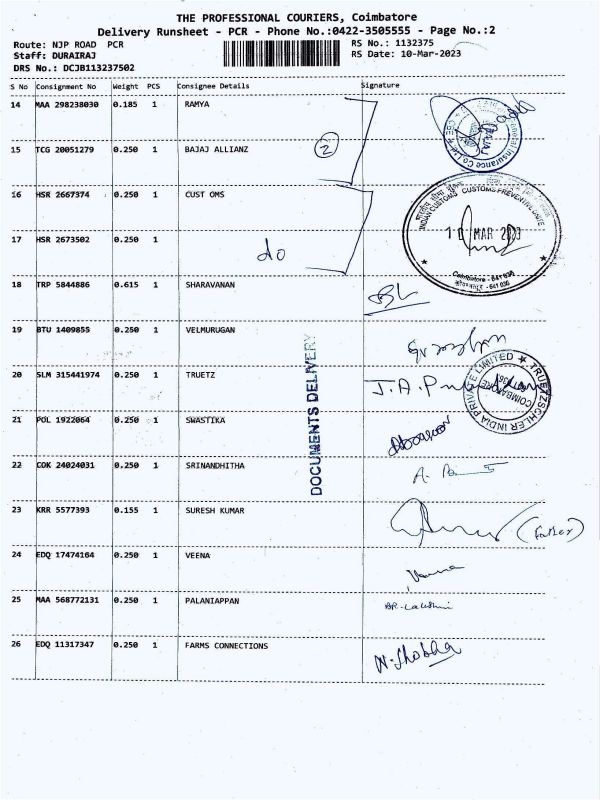 THE PROFESSIONAL COURIERS, Coimbatore
Delivery Runsheet - PCR - Phone No.:0422-3505555 - Page No.:2
Route: NJP ROAD PCR
RS No.: 1132375
Staff: DURAIRAJ
RS Date: 10-Mar-2023
DRS No.: DCJB113237502
S No Consignment No Weight PCS Consignee Details Signature
14 MAA 298238030 0.185 1 RAMYA
15 TCG 20051279 0.250 1 BAJAJ ALLIANZ
2
16 HSR 2667374 0.250 1 CUST OMS
INDIAN CUSTOMS CUSTOMS PREVENTIVE
MAR 2023
Coimbatore - 641
17 HSR 2673502 0.250 1
do
18 TRP 5844886 0.615 1 SHARAVANAN
19 BTU 1409855 0.250 1 VELMURUGAN
20 SLM 315441974 0.250 1 TRUETZ
TRUETZSCHLER INDIA PRIVATE LIMITED
COIMBATORE
21 POL 1922064 0.250 1 SWASTIKA
DOCUMENTS DELIVERY
22 COK 24024031 0.250 1 SRINANDHITHA
23 KRR 5577393 0.155 1 SURESH KUMAR
(Father)
24 EDQ 17474164 0.250 1 VEENA
Veena
25 MAA 568772131 0.250 1 PALANIAPPAN
26 EDQ 11317347 0.250 1 FARMS CONNECTIONS
N. Shobha